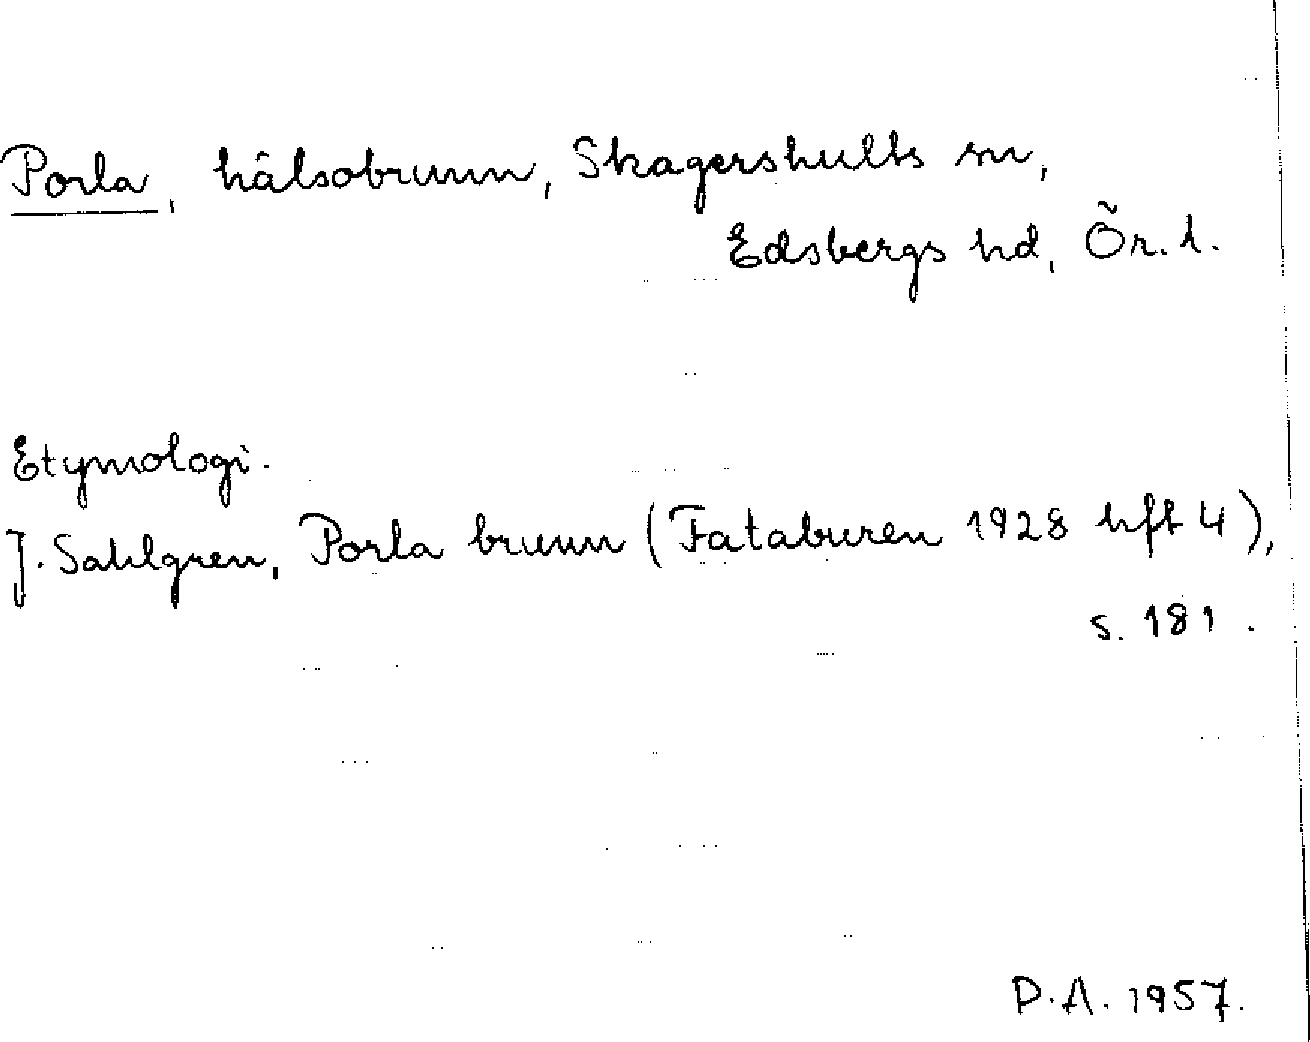 Porla, hälsobrunn, Skagershults sn,
Edsbergs hd, Ör. l.
Etymologi.
J. Sahlgren, Porla brunn (Fataburen 1928 hft 4),
s. 181.
D.A. 1957.